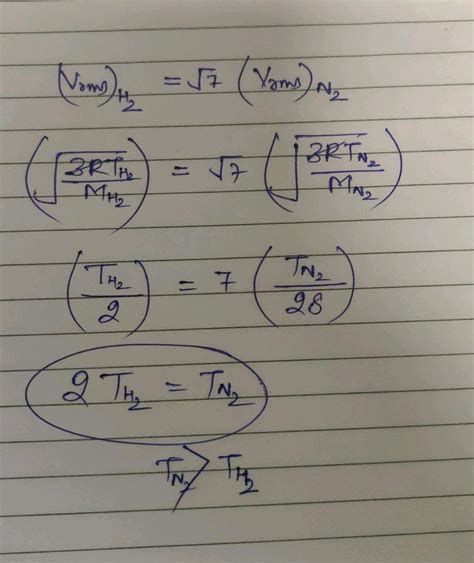 (Vrms)H₂ = √7 (Vrms)N₂
(√(3RTH₂/MH₂)) = √7 (√(3RTN₂/MN₂))
(TH₂/2) = 7 (TN₂/28)
2 TH₂ = TN₂
TN₂ > TH₂